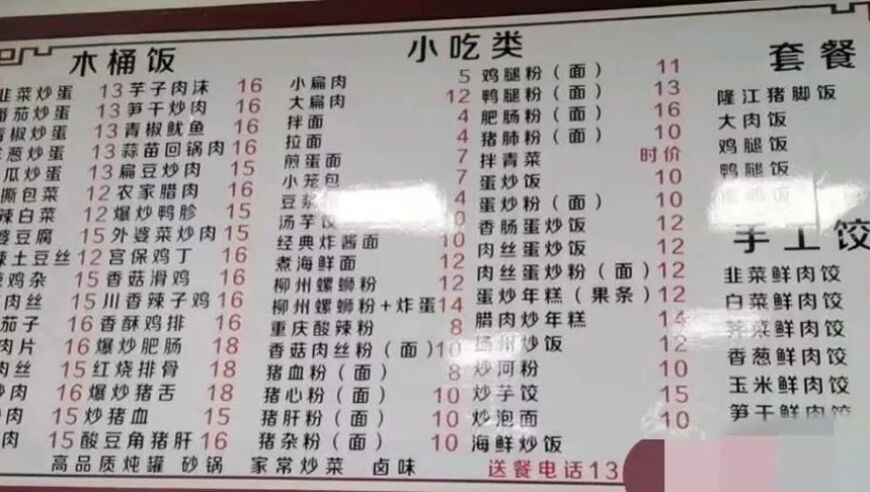 木桶饭
韭菜炒蛋 13
番茄炒蛋 13
青椒炒蛋 13
葱炒蛋 13
瓜炒蛋 13
撕包菜 12
辣白菜 12
婆豆腐 15
辣土豆丝 12
鸡杂 15
肉丝 15
茄子 16
肉片 16
肉丝 15
肉 16
炒肉 15
肉 15
芋子肉沫 16
笋干炒肉 16
青椒鱿鱼 16
蒜苗回锅肉 16
扁豆炒肉 15
农家腊肉 16
爆炒鸭胗 15
外婆菜炒肉 15
宫保鸡丁 16
香菇滑鸡 16
川香辣子鸡 16
香酥鸡排 16
爆炒肥肠 18
红烧排骨 18
爆炒猪舌 18
炒猪血 15
酸豆角猪肝 16
小吃类
小扁肉 5
大扁肉 12
拌面 4
拉面 4
煎蛋面 7
小笼包 7
豆浆 4
汤芋饺
经典炸酱面 10
煮海鲜面 12
柳州螺蛳粉 12
柳州螺蛳粉+炸蛋 14
重庆酸辣粉 8
香菇肉丝粉（面） 10
猪血粉（面） 8
猪心粉（面） 10
猪肝粉（面） 10
猪杂粉（面） 10
鸡腿粉（面） 11
鸭腿粉（面） 13
肥肠粉（面） 16
猪肺粉（面） 10
拌青菜 时价
蛋炒饭 10
蛋炒粉（面） 10
香肠蛋炒饭 12
肉丝蛋炒饭 12
肉丝蛋炒粉（面） 12
蛋炒年糕（果条） 12
腊肉炒年糕 14
扬州炒饭 12
炒河粉 10
炒芋饺 15
炒泡面 10
海鲜炒饭
套餐
隆江猪脚饭
大肉饭
鸡腿饭
鸭腿饭
手工饺
韭菜鲜肉饺
白菜鲜肉饺
荠菜鲜肉饺
香葱鲜肉饺
玉米鲜肉饺
笋干鲜肉饺
高品质炖罐 砂锅 家常炒菜 卤味 送餐电话13